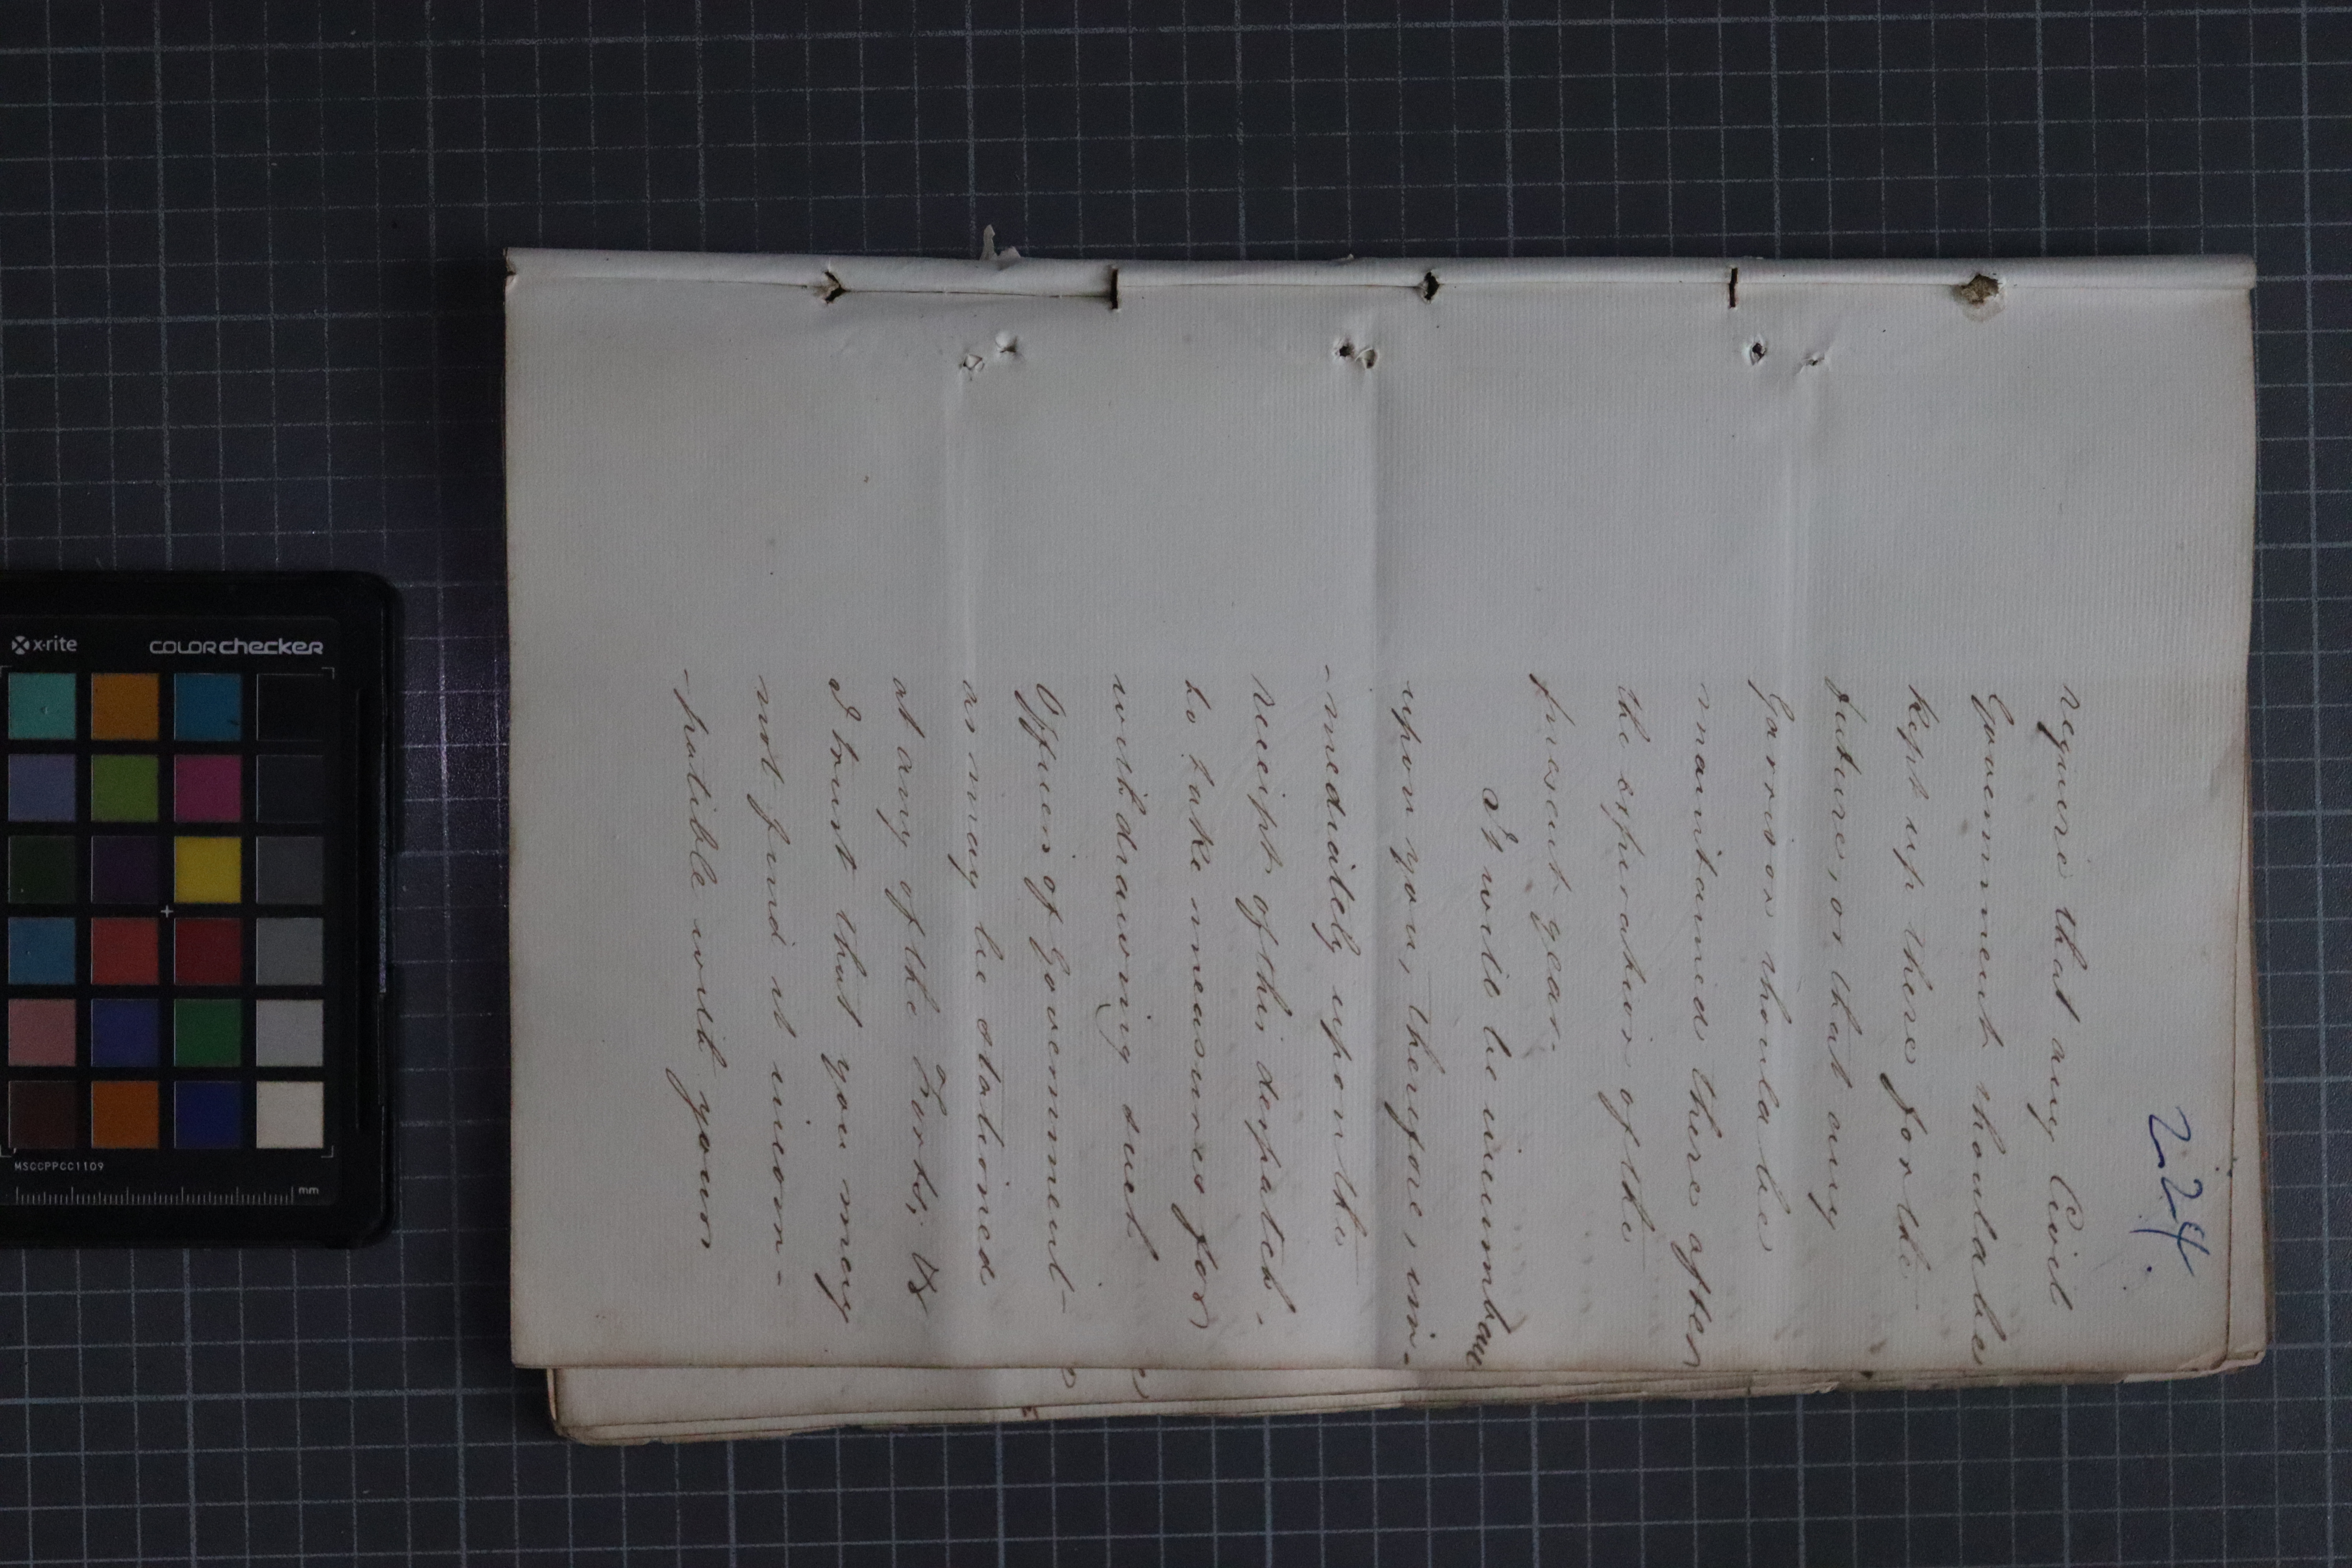 224.
require that any Civil
Government should be
kept up there for the
future, or that any
Garrison should be
maintained there after
the expiration of the
present year.
It will be incumbent
upon you, therefore, im-
-mediately upon the
receipt of this despatch,
to take measures for
withdrawing such
Officers of Government
as may be stationed
at any of the Forts; &
I trust that you may
not find it incom-
-patible with your
x-rite COLORchecker
MSCCPPCC1109
mm